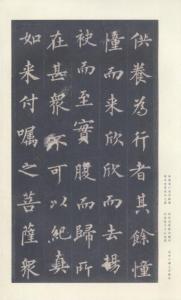 供養為行者其餘憧
憧而來欣欣而去揚
袂而至實腹而歸所
在甚衆不可以紀真
如来付嘱之菩薩衆